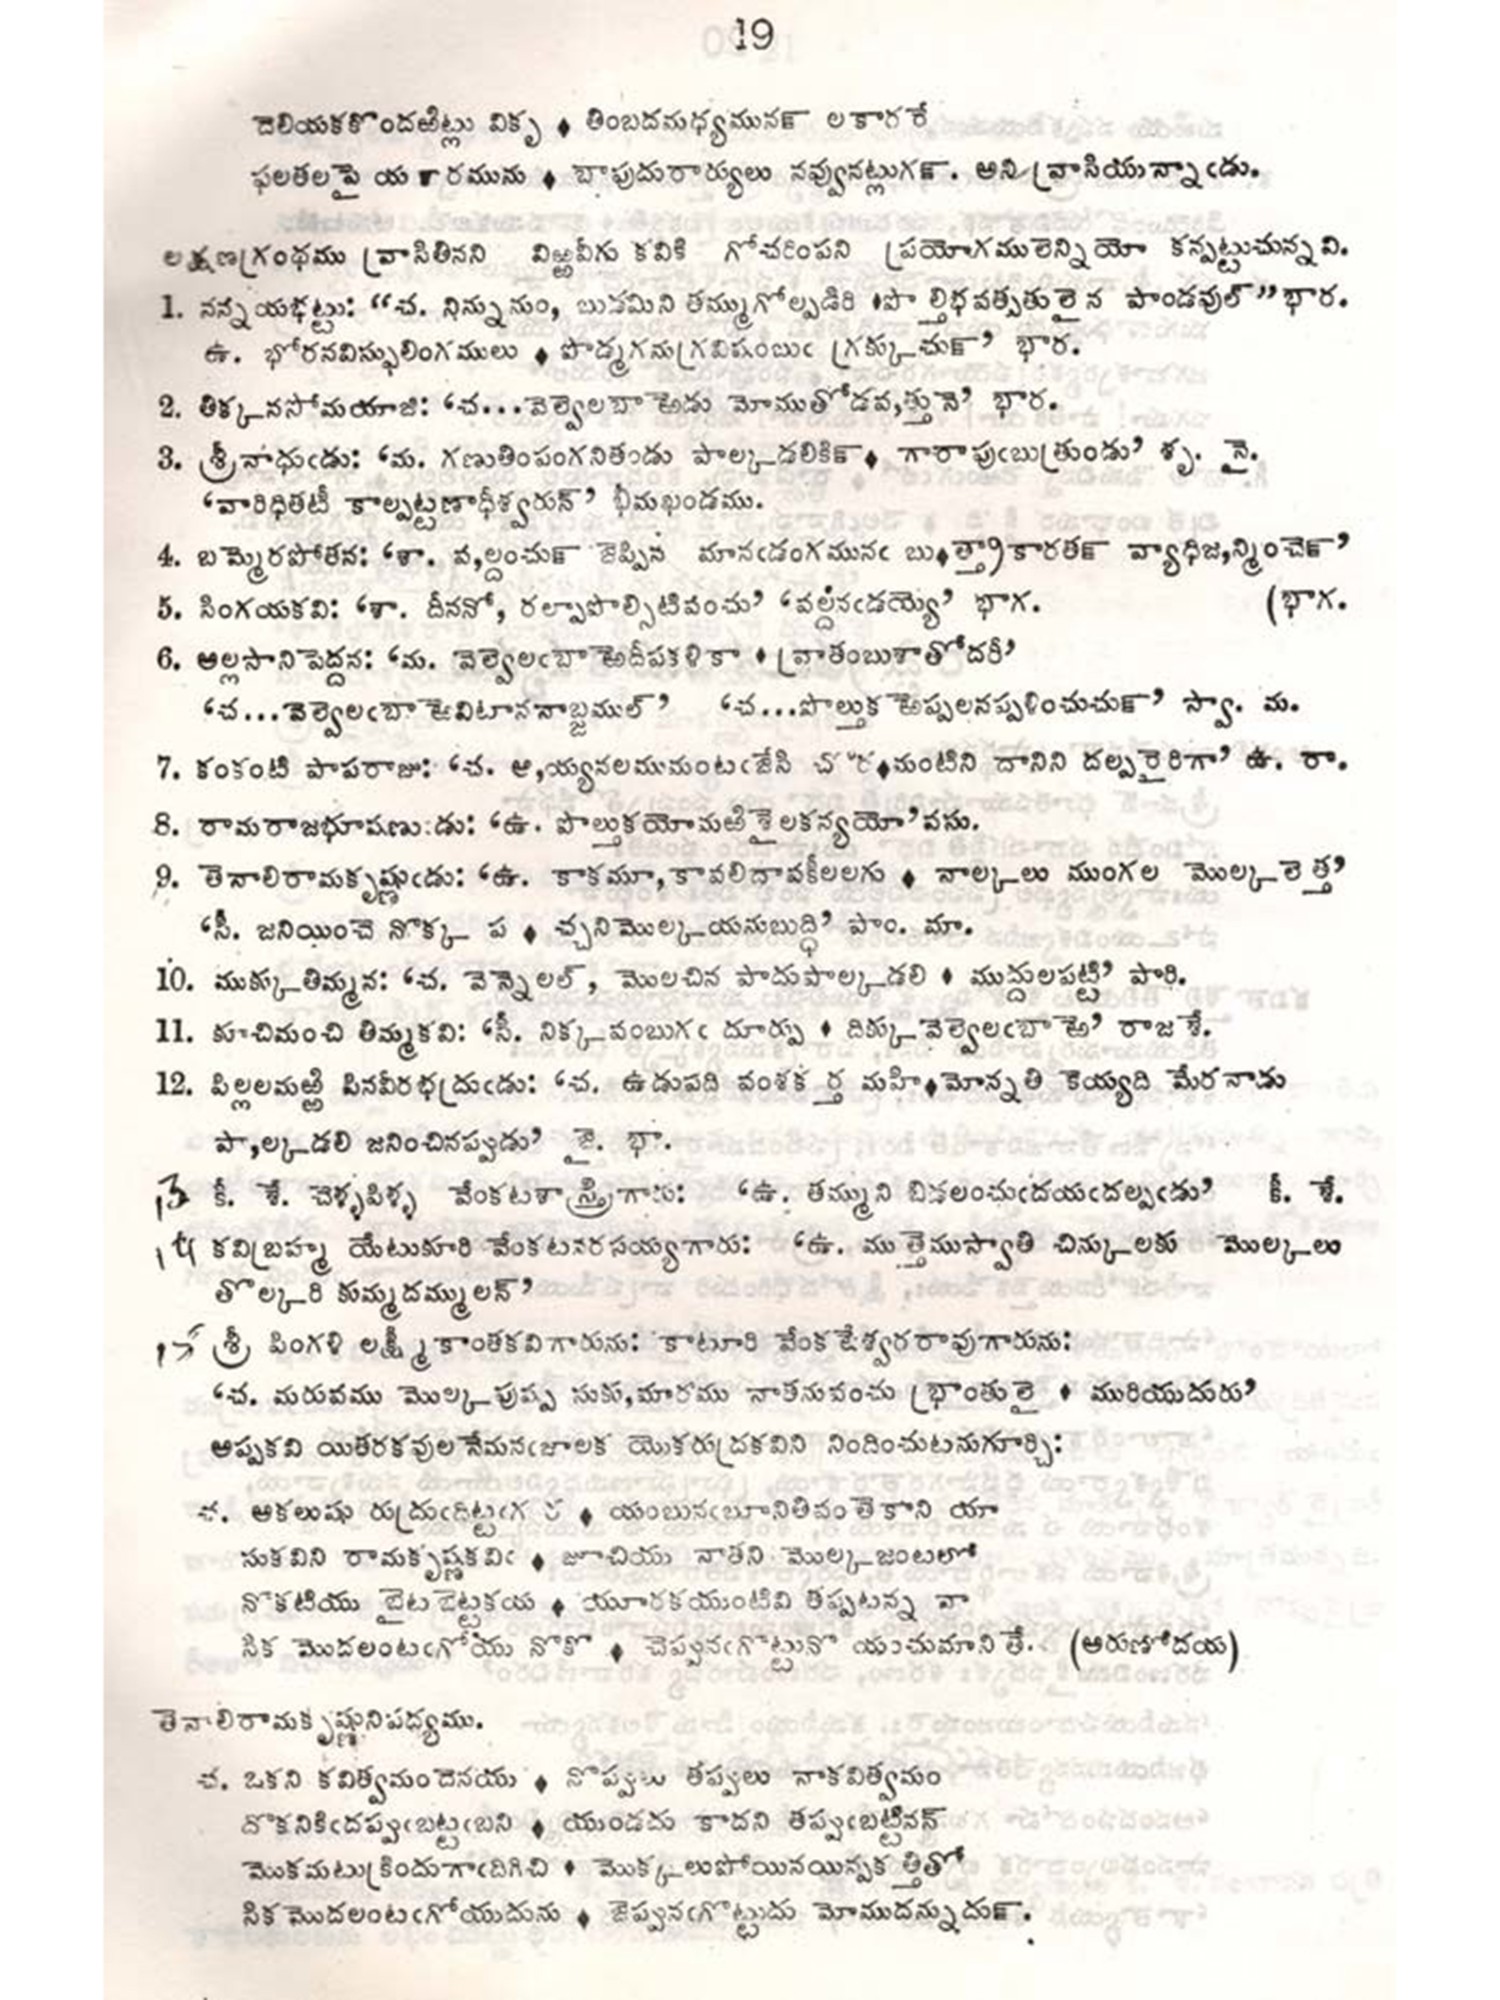 19
దెలియకకొందఱిట్లు వికృ ♦ తింబదమధ్యమునఁ లకాగరే
ఫలతలపై యకారమును ♦ బాపుదురార్యులు నవ్వునట్లుగన్. అని వ్రాసియున్నాఁడు.
లక్షణగ్రంథము వ్రాసితినని విఱ్ఱవీగు కవికి గోచరింపని ప్రయోగములెన్నియో కన్పట్టుచున్నవి.
1. నన్నయభట్టు: “చ. నిన్నునుం, బుడమిని తమ్ముగోల్పడిరి ♦పొల్తిధవత్పతులైన పాండవుల్” భార.
ఉ. భోరనవిస్ఫులింగములు ♦ పొడ్మగనుగ్రవిషంబుఁ గ్రక్కుచున్’ భార.
2. తిక్కనసోమయాజి: ‘చ...వెల్వెలబాఱెడు మోముతోడవ,త్తునె’ భార.
3. శ్రీనాధుఁడు: ‘మ. గణుతింపంగనితండు పాల్కడలికిన్♦ గారాపుఁబుత్రుండు’ శృ. నై.
‘వారిధితటీ కాల్పట్టణాధీశ్వరున్’ భీమఖండము.
4. బమ్మెరపోతన: ‘శా. వ,ల్దంచున్ జెప్పిన మానఁడంగమునఁ బు♦త్త్రాకారతన్ వ్యాధిజ,న్మించెన్’
5. సింగయకవి: ‘శా. దీననో, రల్పాపొల్సిటివంచు’ ‘వల్దనఁడయ్యె’ భాగ. (భాగ.
6. అల్లసానిపెద్దన: ‘మ. వెల్వెలఁబాఱెదీపకళికా ♦ వ్రాతంబుశాతోదరీ’
‘చ...వెల్వెలఁబాఱెవిటాననాబ్జముల్’ ‘చ...పొల్తుక ఱెప్పలనప్పళించుచున్’ స్వా. మ.
7. కంకంటి పాపరాజు: ‘చ. అ,య్యనలముమంటఁజేసి ♦మంటిని దానిని దల్పరైరిగా’ ఉ. రా.
8. రామరాజభూషణుఁడు: ‘ఉ. పొల్తుకయోమఱిశైలకన్యయో’వసు.
9. తెనాలిరామకృష్ణుఁడు: ‘ఉ. కాకమూ,కావలిదావకీలలగు ♦ నాల్కలు ముంగల మొల్కలెత్త’
‘సీ. జనియించె నొక్క ప ♦ చ్చనిమొల్కయనుబుద్ధి’ పాం. మా.
10. ముక్కుతిమ్మన: ‘చ. వెన్నెలల్, మొలచిన పాదుపాల్కడలి ♦ ముద్దులపట్టి’ పారి.
11. కూచిమంచి తిమ్మకవి: ‘సీ. నిక్కవంబుగఁ దూర్పు ♦ దిక్కువెల్వెలఁబాఱె’ రాజశే.
12. పిల్లలమఱ్ఱి పినవీరభద్రుఁడు: ‘చ. ఉడుపది వంశకర్త మహి♦మోన్నతి కెయ్యది మేరనాడు
పా,ల్కడలి జనించినప్పుడు’ జై. భా.
13 కీ. శే. చెళ్ళపిళ్ళ వేంకటశాస్త్రిగారు: ‘ఉ. తమ్ముని విడలంచుఁదయఁదల్పఁడు’ కీ. శే.
14 కవిబ్రహ్మ యేటుకూరి వేంకటనరసయ్యగారు: ‘ఉ. ముత్తెముస్వాతి చిన్కులకు మొల్కలు
తొల్కరి కుమ్మదమ్ములన్’
15 శ్రీ పింగళి లక్ష్మీకాంతకవిగారును: కాటూరి వేంకటేశ్వరరావుగారును:
‘చ. మరువము మొల్కపుప్ప సుకు,మారము నాతనువంచు భ్రాంతులై ♦ మురియుదురు’
అప్పకవి యితరకవులనేమనఁజాలక యొకరుద్రకవిని నిందించుటనుగూర్చి:
చ. అకలుషు రుద్రుఁదిట్టఁగ ♦ యంబునఁబూనితివంతెకాని యా
సుకవిని రామకృష్ణకవిఁ ♦ జూచియు నాతని మొల్కజంటలో
నొకటియు బైటబెట్టకయ ♦ యూరకయుంటివి తప్పటన్న నా
సిక మొదలంటఁగోయు నొకొ ♦ చెప్పునఁగొట్టునొ యంచుమానితే. (అరుణోదయ)
తెనాలిరామకృష్ణునిపద్యము.
చ. ఒకని కవిత్వమందెనయు ♦ నొప్పులు తప్పులు నాకవిత్వమం
దొకనికిఁదప్పుఁబట్టఁబని ♦ యుండదు కాదని తప్పుఁబట్టినన్
మొకమటుక్రిందుగాఁదిగిచి ♦ మొక్కలుపోయినయిన్పకత్తితో
సికమొదలంటఁగోయుదును ♦ జెప్పునఁగొట్టుదు మోముదన్నుదున్.